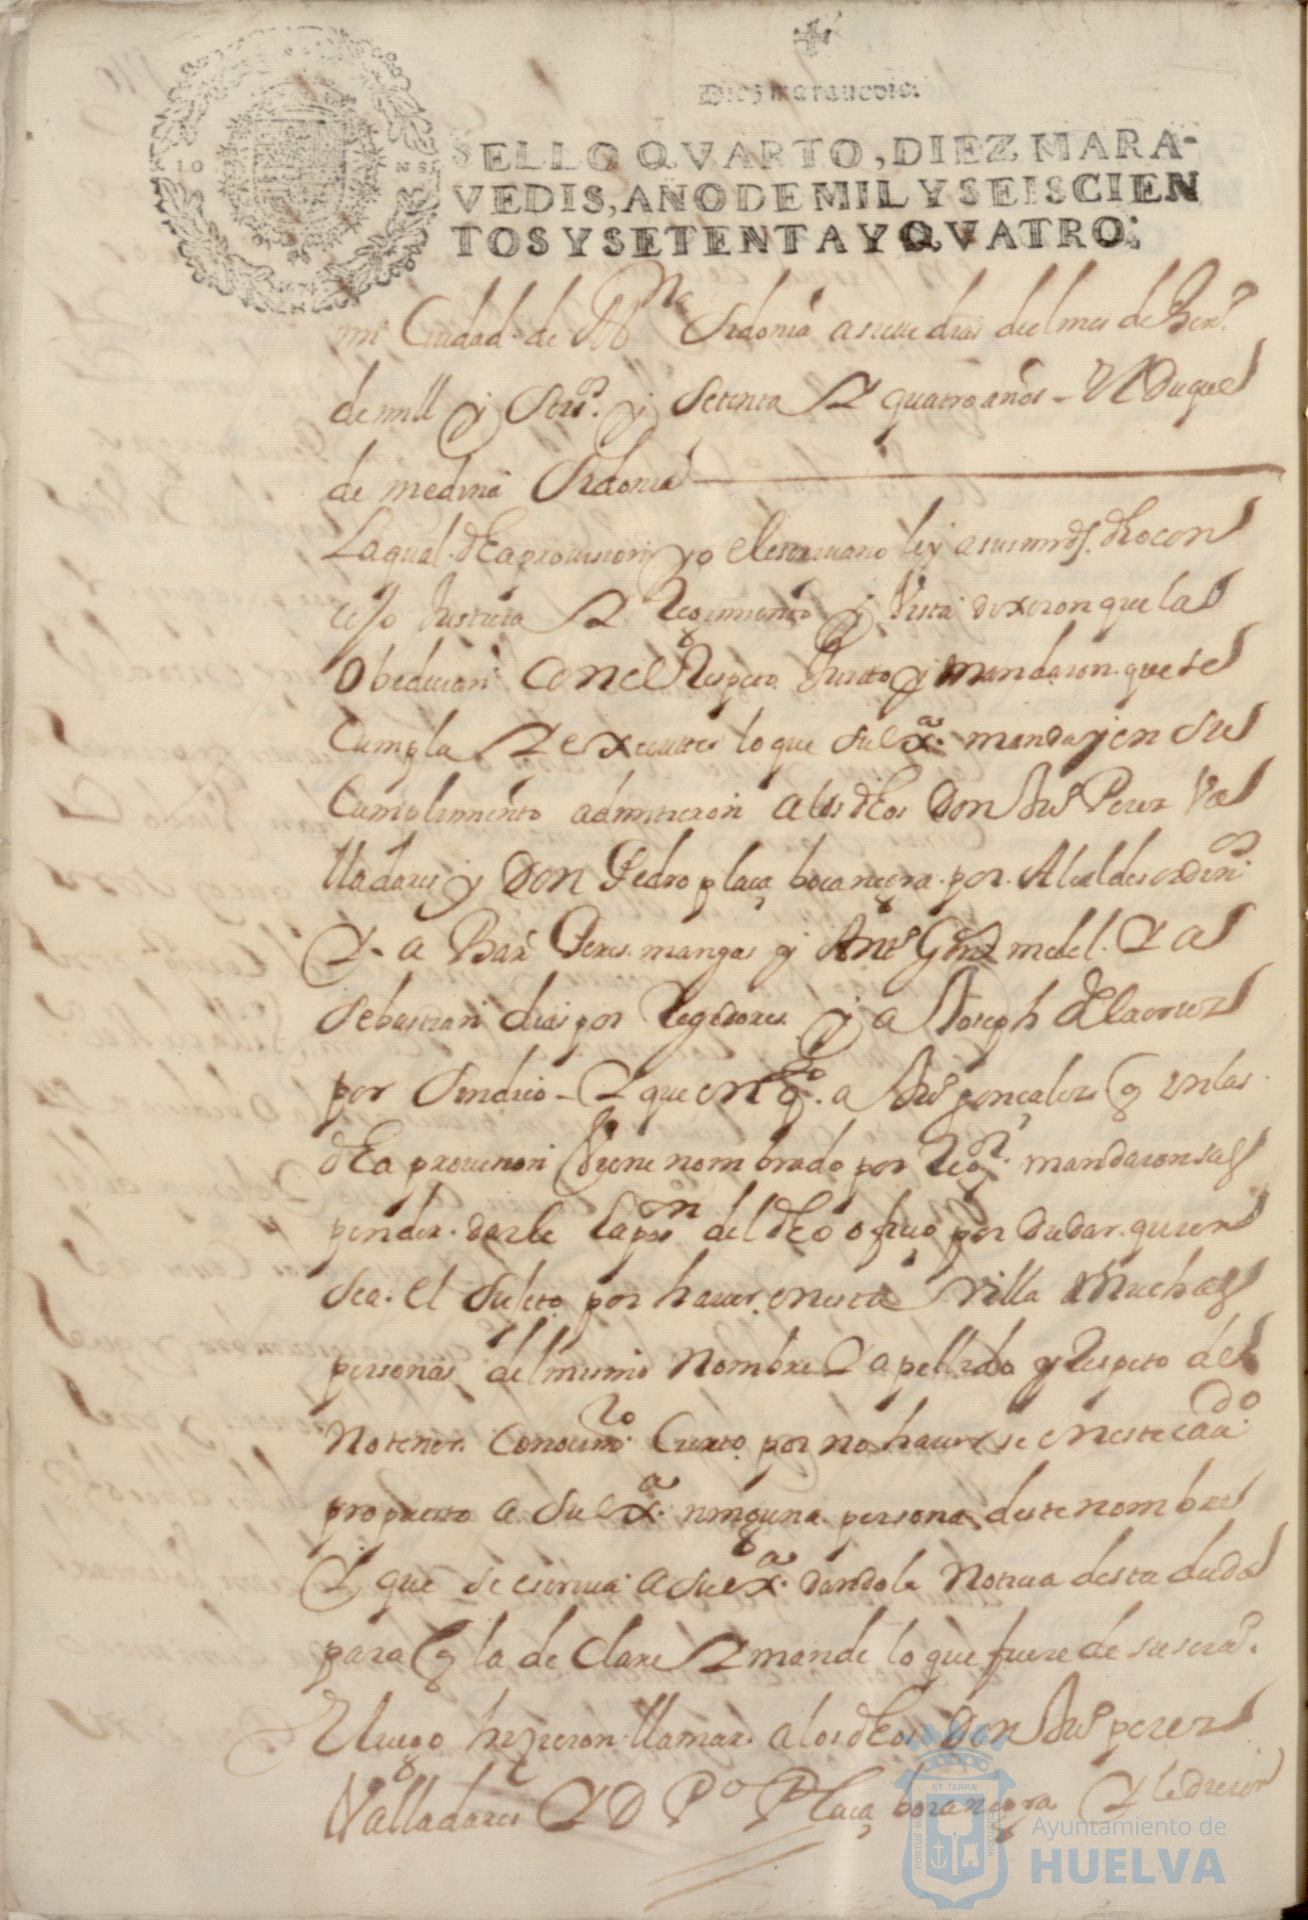 Diez maravedis.
SELLO QVARTO, DIEZ MARA-
VEDIS, AÑO DE MIL Y SEISCIEN
TOS Y SETENTA Y QVATRO.
mi Ciudad de Mna Sidonia a siete dias del mes de
de mill y Seisos y Setenta y quatro años - El Duque
de medina Sidonia
La qual dha provision yo el escrivano ley a sus mrds. dho con
cejo Justicia y Regimiento y Vista dixeron que la
Obedecian Con el Respeto Justo y mandaron que se
Cumpla y execute lo que su exa. manda y en su
Cumplimiento admitieron a los dhos Don Juo Perez Va
lladares y Don Pedro plaça bocanegra por Alcaldes ordinos
Y a Bar Peres mangas y Anto Gonz medel. Y a
Sebastian dias por Regidores y a Joseph de la
por Sindico - Y que en qto. a Juo gonçales q en la
dha provision Viene nombrado por Regor. mandaron sus
pender darle la posn del dho oficio por dudar quien
sea el sujeto por haver en esta Villa Muchas
personas del mismo nombre y apellido y Respeto de
No tener Conocimto Cierto por no haverse en este cavdo
propuesto a su exa. ninguna persona deste nombre
Y que se escriva a su exa. dandole Noticia desta duda
para q la declare y mande lo que fuere de su
Y luego hizieron llamar a los dhos Don Juo perez
Valladares Y D Po Plaça bocanegra Y le dixeron
ET TERRÆ
PORTUS MARIS
CUSTODIA
Ayuntamiento de
HUELVA